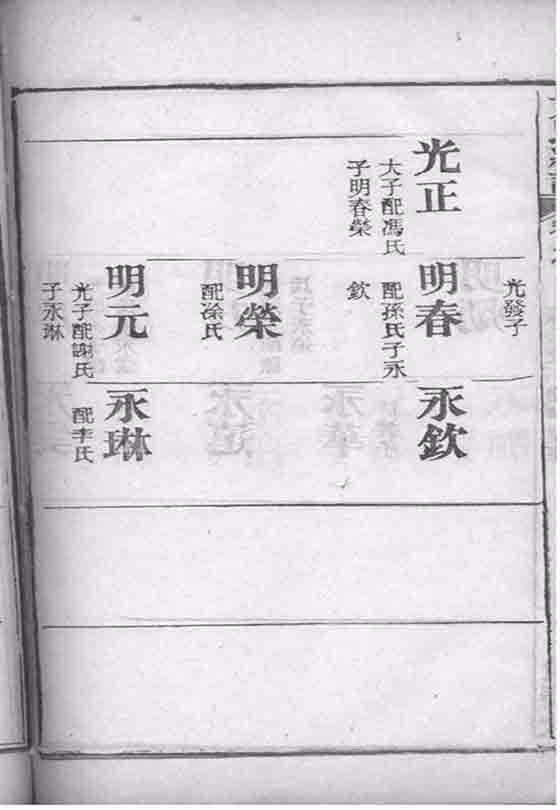 光正
大子配馮氏
子明春榮
光發子
明春
配孫氏子永
欽
明榮
配涂氏
明元
光子配謝氏
子永琳
永欽
永琳
配李氏